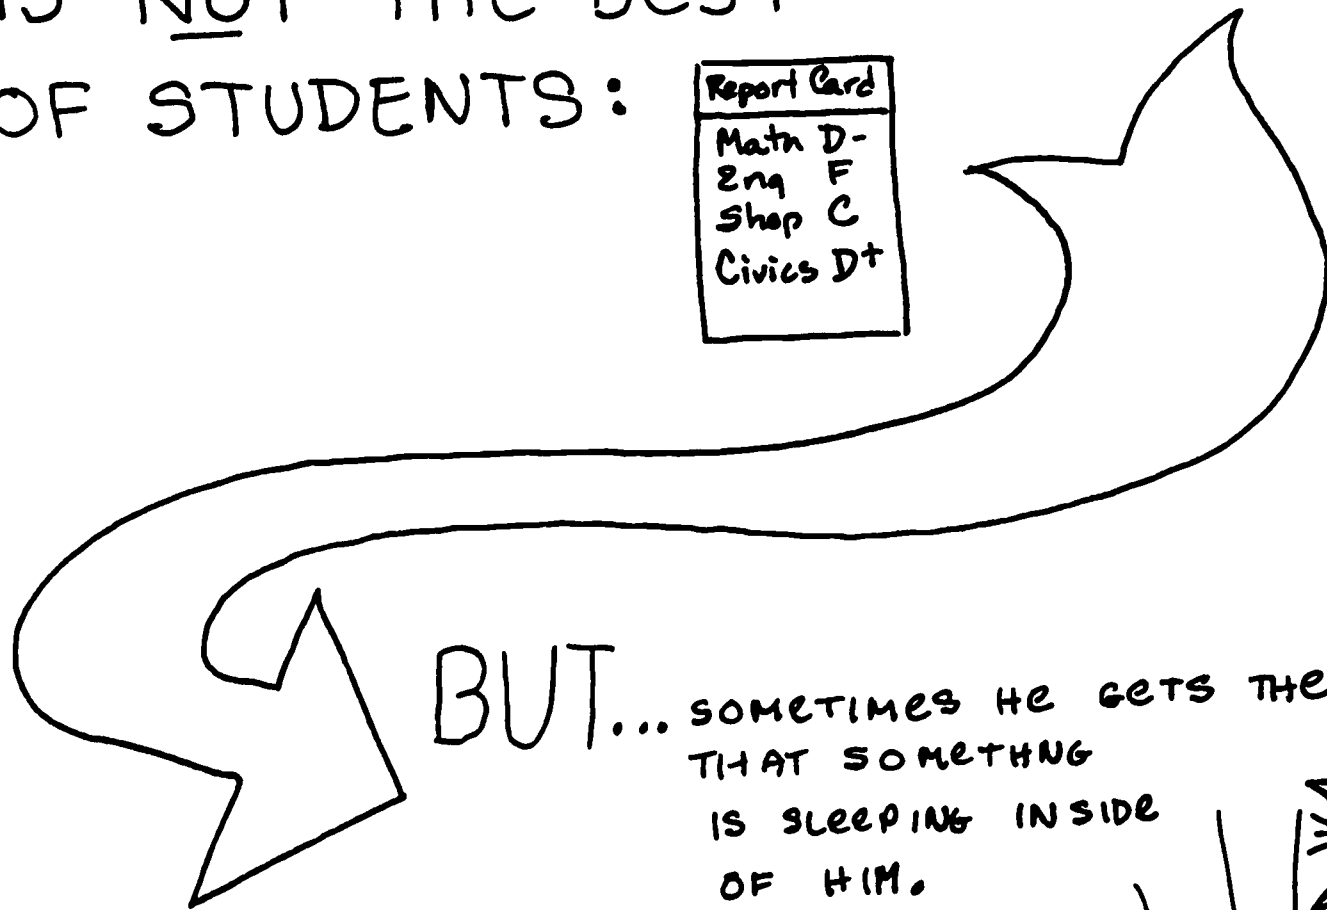 IS NOT THE BEST
OF STUDENTS:
Report Card
Math D-
Eng F
Shop C
Civics D+
BUT... SOMETIMES HE GETS THE
THAT SOMETHNG
IS SLEEPING INSIDE
OF HIM.